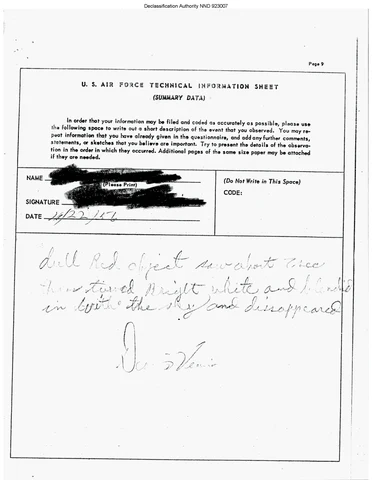 Declassification Authority NND 923007
Page 9
U. S. AIR FORCE TECHNICAL INFORMATION SHEET
(SUMMARY DATA)
In order that your information may be filed and coded as accurately as possible, please use
the following space to write out a short description of the event that you observed. You may re-
peat information that you have already given in the questionnaire, and add any further comments,
statements, or sketches that you believe are important. Try to present the details of the observa-
tion in the order in which they occurred. Additional pages of the same size paper may be attached
if they are needed.
NAME
(Please Print)
SIGNATURE
DATE
(Do Not Write in This Space)
CODE:
dull Red object saw about
then turned Bright white and
in the sky and disappeared